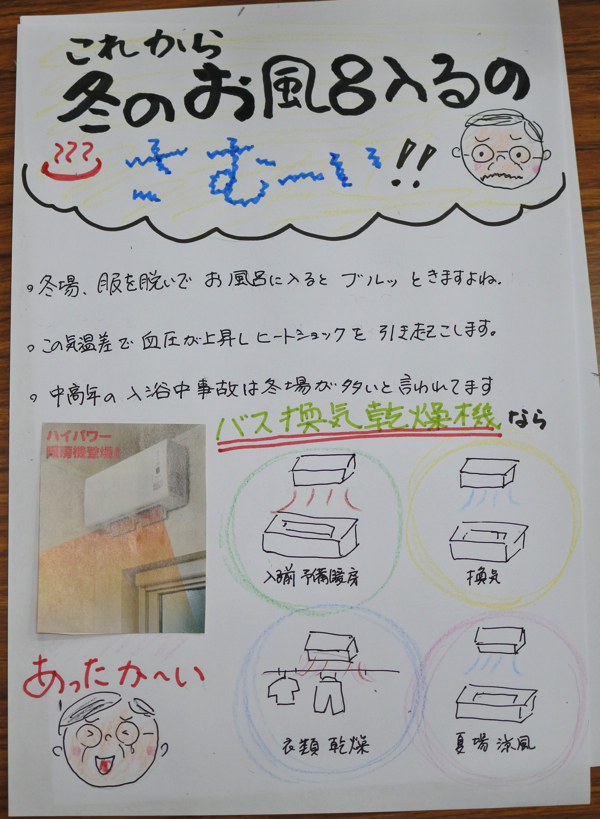 これから
冬のお風呂入るの
さむ〜い!!
。冬場、服を脱いで お風呂に入ると ブルッ ときますよね.
。この気温差で 血圧が上昇し ヒートショックを 引き起こします。
。中高年の 入浴中事故は冬場が多いと言われてます
バス換気乾燥機なら
ハイパワー
入浴前 予備暖房
換気
あったか〜い
衣類 乾燥
夏場 涼風